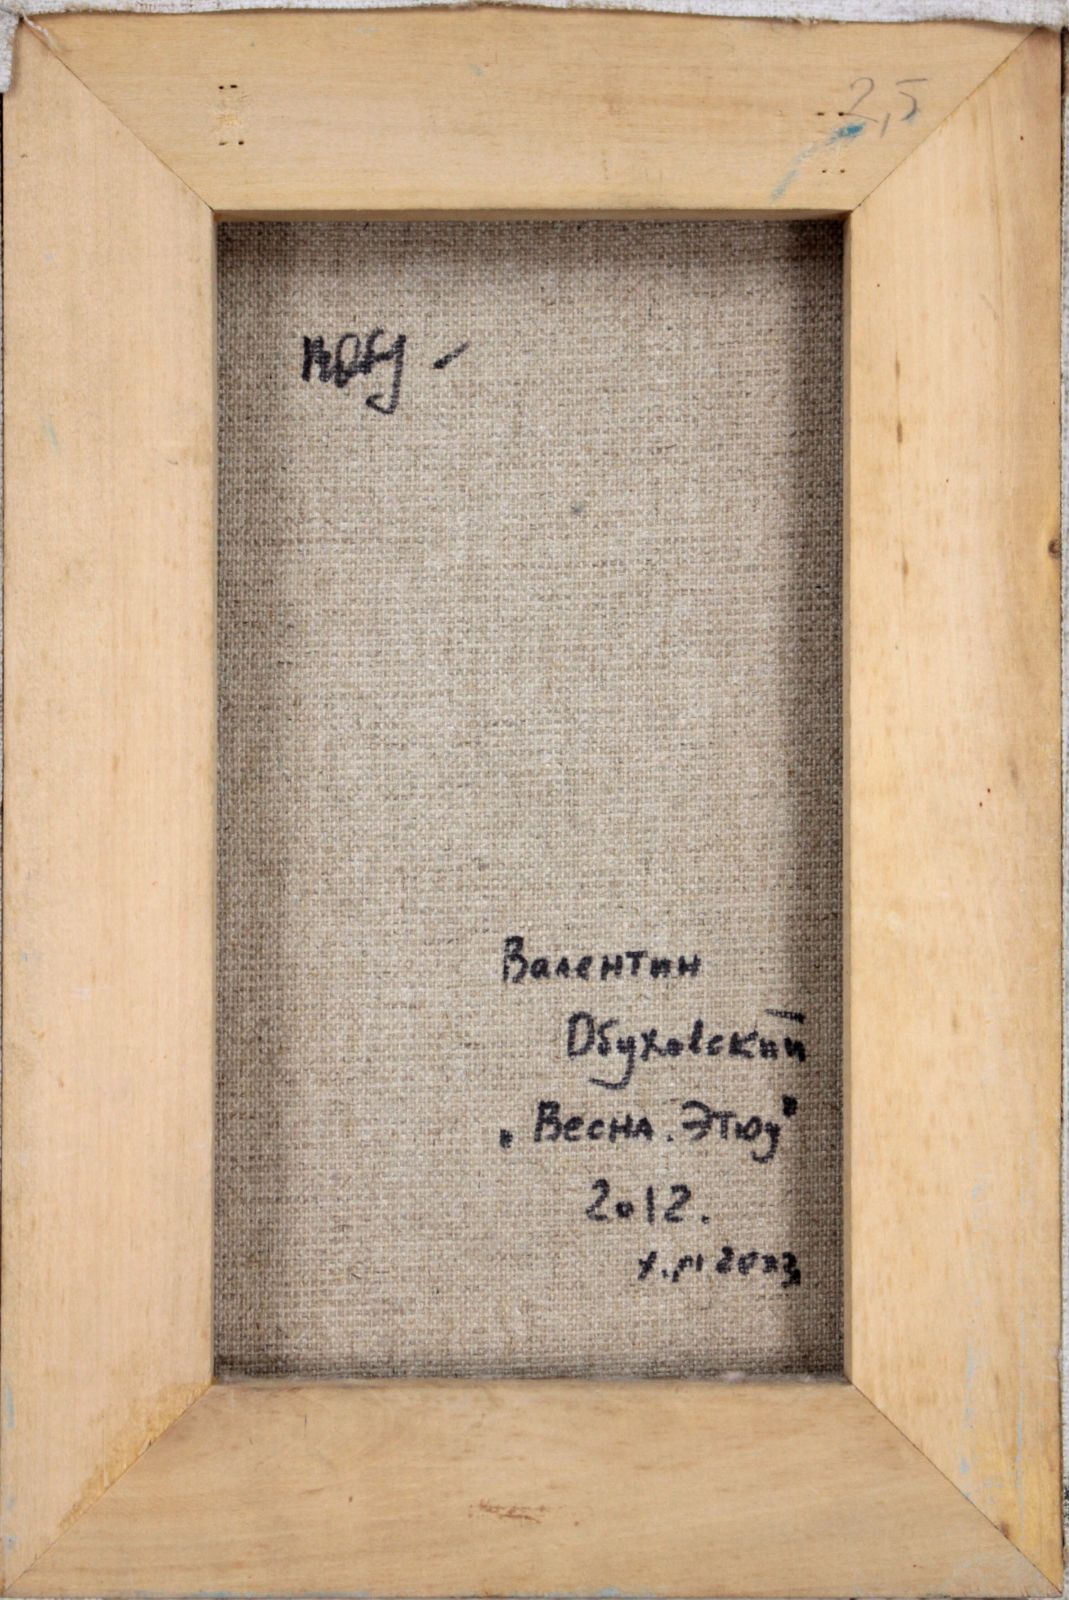 2,5
Валентин
Обуховский
„Весна. Этюд"
2012.
х.м